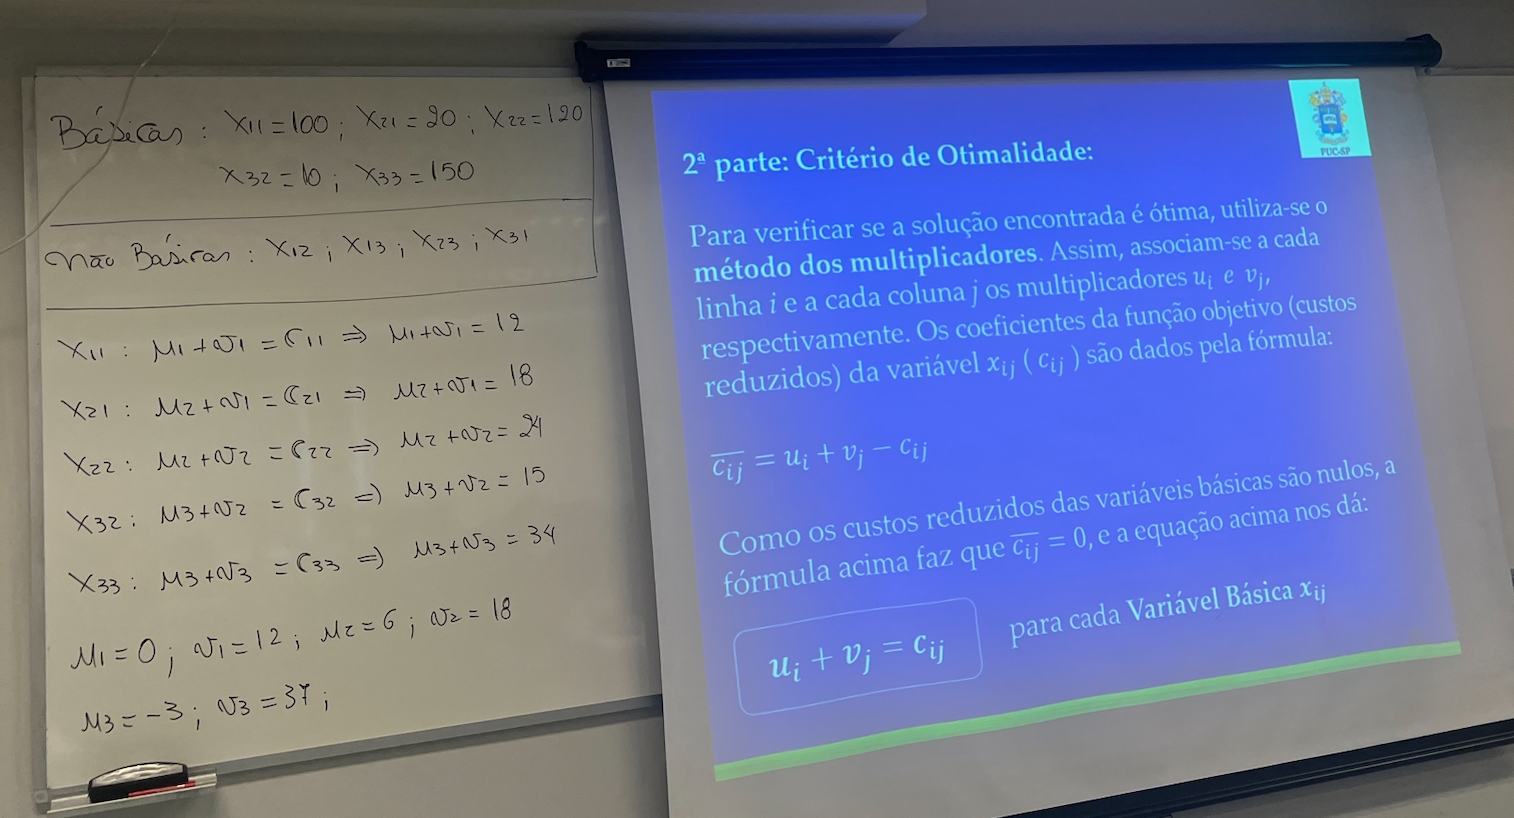 Básicas : X11=100 ; X21=20 ; X22=120
X32=10 ; X33=150
Não Básicas : X12 ; X13 ; X23 ; X31
X11 : μ1+v1 = C11 => μ1+v1 = 12
X21 : μ2+v1 = C21 => μ2+v1 = 18
X22 : μ2+v2 = C22 => μ2+v2 = 24
X32 : μ3+v2 = C32 => μ3+v2 = 15
X33 : μ3+v3 = C33 => μ3+v3 = 34
μ1=0 ; v1=12 ; μ2=6 ; v2=18
μ3=-3 ; v3=37 ;
PUC-SP
2ª parte: Critério de Otimalidade:
Para verificar se a solução encontrada é ótima, utiliza-se o
método dos multiplicadores. Assim, associam-se a cada
linha i e a cada coluna j os multiplicadores uᵢ e vⱼ,
respectivamente. Os coeficientes da função objetivo (custos
reduzidos) da variável xᵢⱼ ( cᵢⱼ ) são dados pela fórmula:
c̅ᵢⱼ = uᵢ + vⱼ − cᵢⱼ
Como os custos reduzidos das variáveis básicas são nulos, a
fórmula acima faz que c̅ᵢⱼ = 0, e a equação acima nos dá:
uᵢ + vⱼ = cᵢⱼ para cada Variável Básica xᵢⱼ